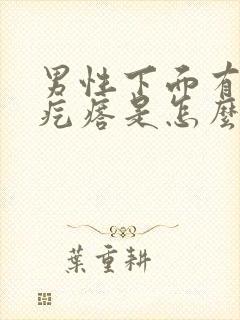 男性下面有
疙瘩是怎麼
葉重耕